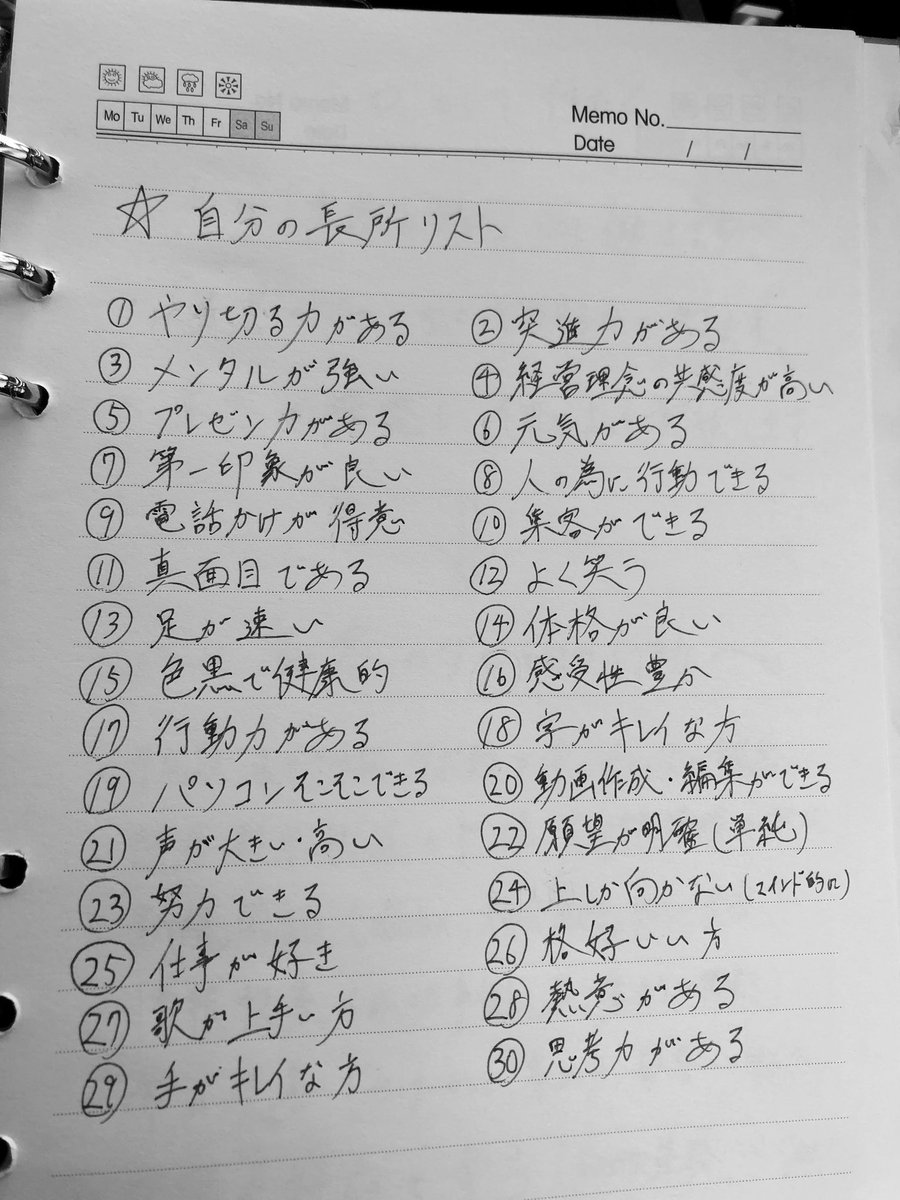 Mo Tu We Th Fr Sa Su
Memo No.
Date / /
☆ 自分の長所リスト
① やり切る力がある ② 突進力がある
③ メンタルが強い ④ 経営理念の共感度が高い
⑤ プレゼン力がある ⑥ 元気がある
⑦ 第一印象が良い ⑧ 人の為に行動できる
⑨ 電話かけが得意 ⑩ 集客ができる
⑪ 真面目である ⑫ よく笑う
⑬ 足が速い ⑭ 体格が良い
⑮ 色黒で健康的 ⑯ 感受性豊か
⑰ 行動力がある ⑱ 字がキレイな方
⑲ パソコンそこそこできる ⑳ 動画作成・編集ができる
㉑ 声が大きい・高い ㉒ 願望が明確(単純)
㉓ 努力できる ㉔ 上しか向かない(マインド的に)
㉕ 仕事が好き ㉖ 格好いい方
㉗ 歌が上手い方 ㉘ 熱意がある
㉙ 手がキレイな方 ㉚ 思考力がある